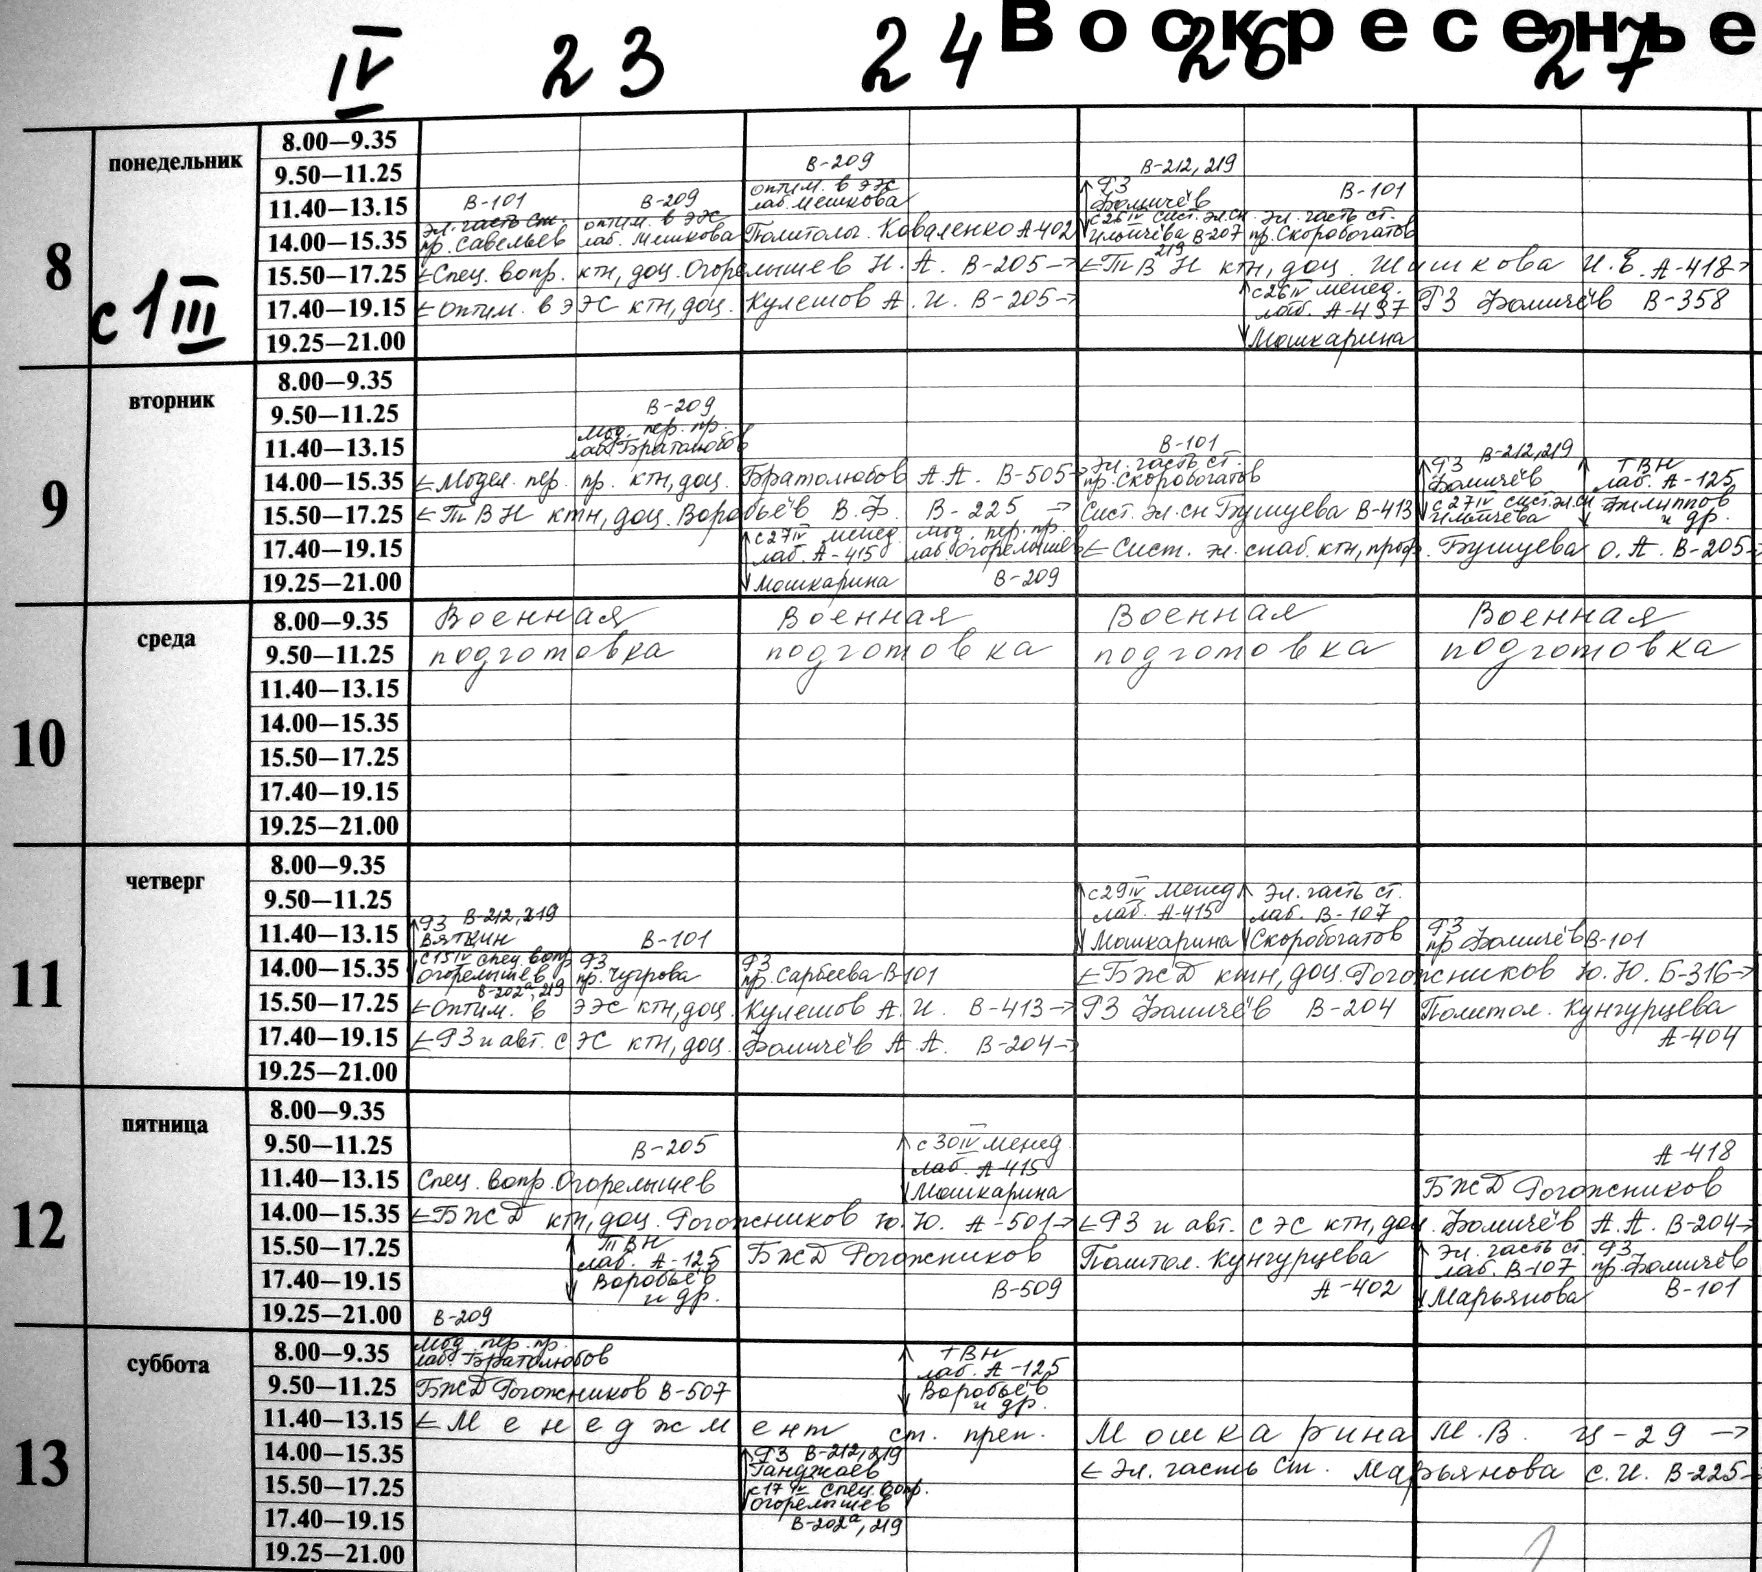 Воскресенье
IV 23 24 26 27
8
с 1 III
понедельник
8.00—9.35
9.50—11.25 В-209 В-212, 219
11.40—13.15 В-101 В-209 оптим. в ЭЭС лаб. Мешкова ГЗ Фомичёв В-101
14.00—15.35 Эл. часть ст. пр. Савельев оптим. в ЭЭС лаб. Мешкова Политолог. Коваленко А-402 с 26 IV сист. эл. сн. Ильичёва В-207 219 эл. часть ст. пр. Скоробогатов
15.50—17.25 ←Спец. вопр. ктн, доц. Огорелышев Н. А. В-205→ ←ТВН ктн, доц. Шишкова И. Е. А-418→
17.40—19.15 ←Оптим. в ЭЭС ктн, доц. Кулешов А. И. В-205→ с 26 IV менед. лаб. А-437 ГЗ Фомичёв В-358
19.25—21.00 Мошкарина
9
вторник
8.00—9.35
9.50—11.25 В-209
11.40—13.15 Мод. пер. пр. лаб. Братолюбов В-101 В-212, 219
14.00—15.35 ←Модел. пер. пр. ктн, доц. Братолюбов А. А. В-505→ Эл. часть ст. пр. Скоробогатов ГЗ Фомичёв ТВН лаб. А-125
15.50—17.25 ←ТВН ктн, доц. Воробьёв В. Ф. В-225→ Сист. эл. сн Бушуева В-413 с 27 IV сист. эл. сн Ильичёва Филиппов и др.
17.40—19.15 с 27 IV менед. лаб. А-415 мод. пер. пр. лаб. Огорелышев ←Сист. эл. снаб. ктн, проф. Бушуева О. А. В-205→
19.25—21.00 Мошкарина В-209
10
среда
8.00—9.35 Военная Военная Военная Военная
9.50—11.25 подготовка подготовка подготовка подготовка
11.40—13.15
14.00—15.35
15.50—17.25
17.40—19.15
19.25—21.00
11
четверг
8.00—9.35
9.50—11.25 В-212, 219 с 29 IV менед лаб. А-415 Эл. часть ст. лаб. В-107
11.40—13.15 ГЗ Вяткин В-101 Мошкарина Скоробогатов ГЗ пр Фомичёв В-101
14.00—15.35 с 15 IV спец. вопр Огорелышев В-202а, 219 ГЗ пр. Чугрова ГЗ пр. Сарбеева В-101 ←БЖД ктн, доц. Рогожников Ю. Ю. Б-316→
15.50—17.25 ←Оптим. в ЭЭС ктн, доц. Кулешов А. И. В-413→ ГЗ Фомичёв В-204 Политол. Кунгурцева
17.40—19.15 ←ГЗ и авт. с ЭС ктн, доц. Фомичёв А. А. В-204→ А-404
19.25—21.00
12
пятница
8.00—9.35
9.50—11.25 В-205 с 30 IV менед. А-418
11.40—13.15 Спец. вопр. Огорелышев лаб. А-415 Мошкарина БЖД Рогожников
14.00—15.35 ←БЖД ктн, доц. Рогожников Ю. Ю. А-501→ ←ГЗ и авт. с ЭС ктн, доц. Фомичёв А. А. В-204→
15.50—17.25 ТВН лаб. А-125 БЖД Рогожников Политол. Кунгурцева Эл. часть ст. лаб. В-107 ГЗ пр. Фомичёв
17.40—19.15 Воробьёв и др. В-509 А-402 Марьянова В-101
19.25—21.00 В-209
13
суббота
8.00—9.35 Мод. пер. пр. лаб. Братолюбов ТВН лаб. А-125
9.50—11.25 БЖД Рогожников В-507 Воробьёв и др.
11.40—13.15 ←Менеджмент ст. преп. Мошкарина М. В. Ц-29→
14.00—15.35 ГЗ В-212, 219 Ганджаев ←Эл. часть ст. Марьянова С. И. В-225→
15.50—17.25 с 17 IV спец. вопр. Огорелышев
17.40—19.15 В-202а, 219
19.25—21.00